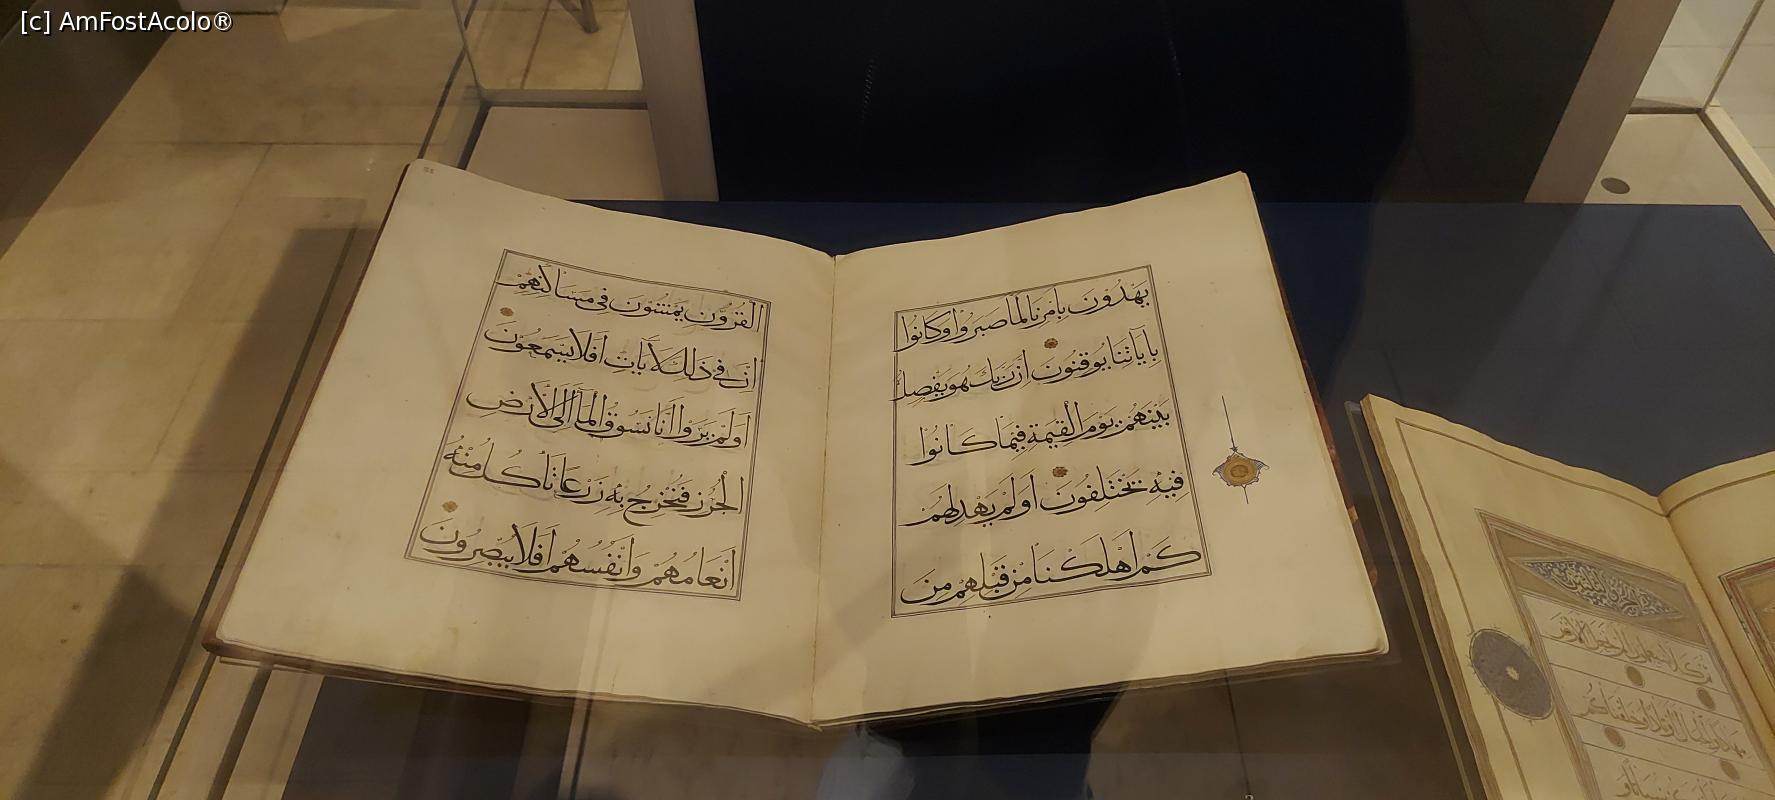 [c] AmFostAcolo®
يَهْدُونَ بِأَمْرِنَا لَمَّا صَبَرُوا وَكَانُوا
بِآيَاتِنَا يُوقِنُونَ إِنَّ رَبَّكَ هُوَ يَفْصِلُ
بَيْنَهُمْ يَوْمَ الْقِيٰمَةِ فِيمَا كَانُوا
فِيهِ يَخْتَلِفُونَ أَوَلَمْ يَهْدِ لَهُمْ
كَمْ أَهْلَكْنَا مِنْ قَبْلِهِمْ مِنَ
الْقُرُونِ يَمْشُونَ فِي مَسَاكِنِهِمْ
إِنَّ فِي ذَلِكَ لَآيَاتٍ أَفَلَا يَسْمَعُونَ
أَوَلَمْ يَرَوْا أَنَّا نَسُوقُ الْمَاءَ إِلَى الْأَرْضِ
الْجُرُزِ فَنُخْرِجُ بِهِ زَرْعًا تَأْكُلُ مِنْهُ
أَنْعَامُهُمْ وَأَنْفُسُهُمْ أَفَلَا يُبْصِرُونَ